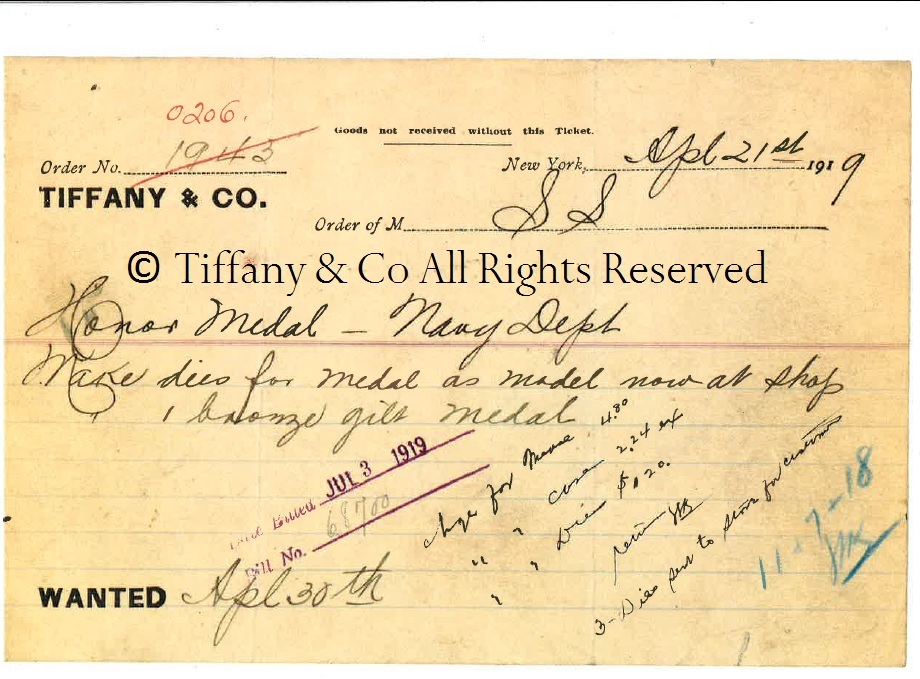 0206.
Goods not received without this Ticket.
Order No. 1943
New York, Apl 21st 1919
TIFFANY & CO.
Order of M S S
© Tiffany & Co All Rights Reserved
Honor Medal – Navy Dept
Make dies for medal as model now at shop
1 bronze gilt medal
chge for 4.80
" " case 2.24 ex
" " Dies
Billed JUL 3 1919
Bill No. 68700
3 - Dies sent to store for customer
11-7-18
WANTED Apl 30th